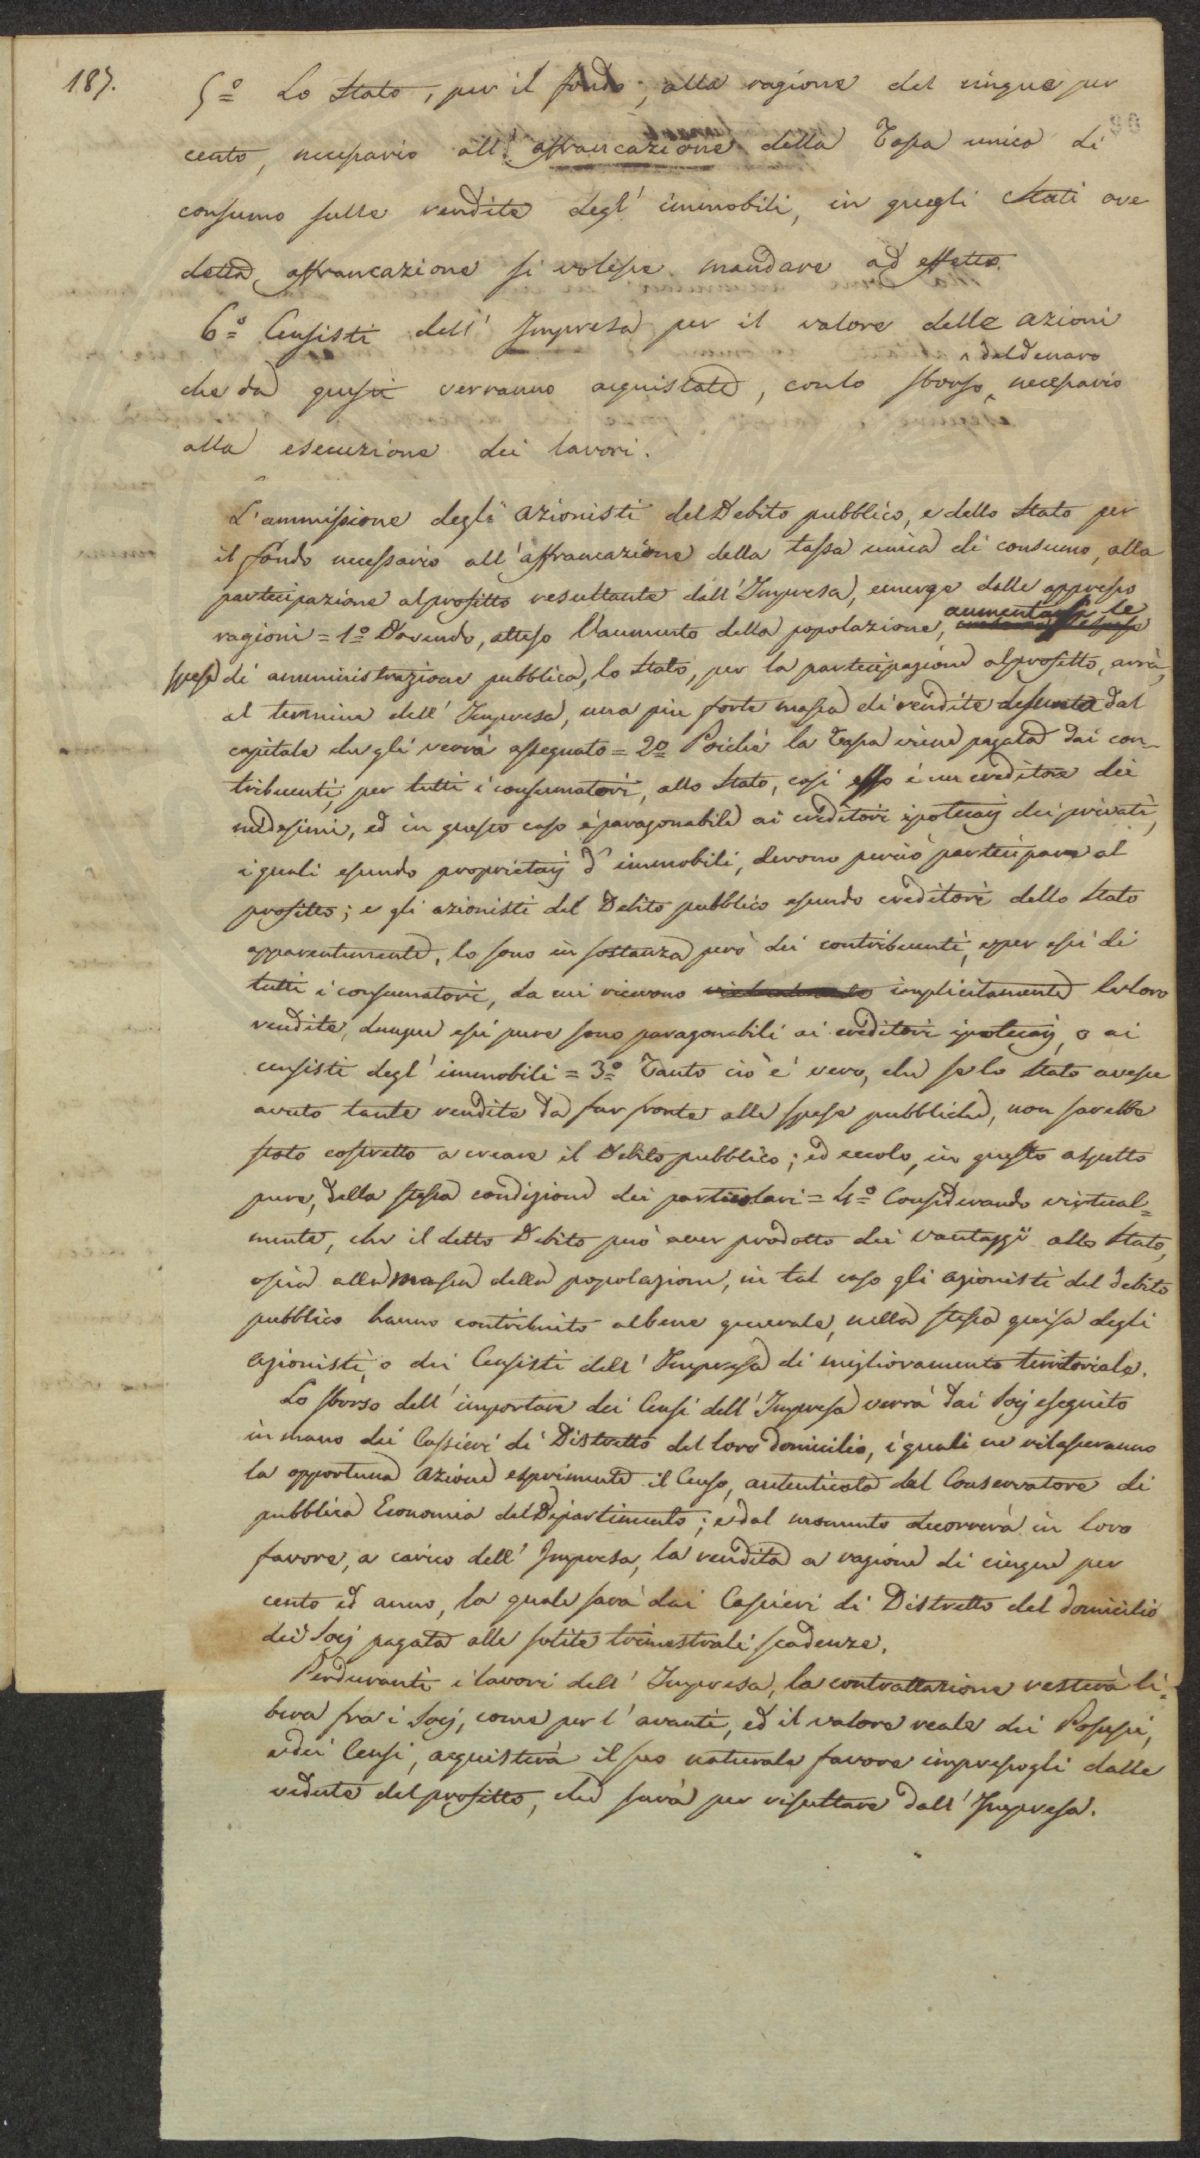 187.
90
5.o Lo Stato, per il fondo, alla ragione del cinque per
cento, necessario all'affrancazione della Tassa unica di
consumo sulle rendite degl'immobili, in quegli Stati ove
detta affrancazione si volesse mandare ad effetto.
6.o Censisti dell'Impresa per il valore delle azioni
che da questi verranno acquistate, con lo sborso del denaro necessario
alla esecuzione dei lavori.
L'ammissione degli azionisti del Debito pubblico, e dello Stato per
il fondo necessario all'affrancazione della tassa unica di consumo, alla
partecipazione al profitto resultante dall'Impresa, emerge dalle appresso
ragioni = 1.o Dovendo, atteso l'aumento della popolazione, aumentarsi le
spese di amministrazione pubblica, lo Stato, per la partecipazione al profitto, avrà,
al termine dell'Impresa, una più forte massa di rendite desunta dal
capitale che gli verrà assegnato = 2.o Poichè la Tassa viene pagata dai con-
tribuenti, per tutti i consumatori, allo Stato, così esso è un creditore dei
medesimi, ed in questo caso è paragonabile ai creditori ipotecarj dei privati,
i quali essendo proprietarj d'immobili, devono perciò partecipare al
profitto; e gli azionisti del Debito pubblico essendo creditori dello Stato
apparentemente, lo sono in sostanza però dei contribuenti, e per essi di
tutti i consumatori, da cui ricevono implicitamente le loro
rendite, dunque essi pure sono paragonabili ai creditori ipotecarj, o ai
censisti degl'immobili = 3.o Tanto ciò è vero, che se lo Stato avesse
avuto tante rendite da far fronte alle spese pubbliche, non sarebbe
stato costretto a creare il Debito pubblico; ed eccolo, in questo aspetto
pure, della stessa condizione dei particolari = 4.o Considerando virtual=
mente, che il detto Debito può aver prodotto dei vantaggi allo Stato,
ossia alla massa della popolazione, in tal caso gli azionisti del debito
pubblico hanno contribuito al bene generale, nella stessa guisa degli
azionisti, o dei Censisti dell'Impresa di miglioramento territoriale.
Lo sborso dell'importare dei Censi dell'Impresa verrà dai Socj eseguito
in mano dei Cassieri di Distretto del loro domicilio, i quali ne rilasceranno
la opportuna azione esprimente il Censo, autenticata dal Conservatore di
pubblica Economia del Dipartimento; e dal momento decorrerà in loro
favore, a carico dell'Impresa, la rendita a ragione di cinque per
cento ed anno, la quale sarà dai Cassieri di Distretto del domicilio
dei Socj pagata alle solite trimestrali scadenze.
Perduranti i lavori dell'Impresa, la contrattazione resterà li=
bera fra i Socj, come per l'avanti, ed il valore reale dei Possessi,
e dei Censi, acquisterà il suo naturale favore impressogli dalle
vedute del profitto, che sarà per risultare dall'Impresa.